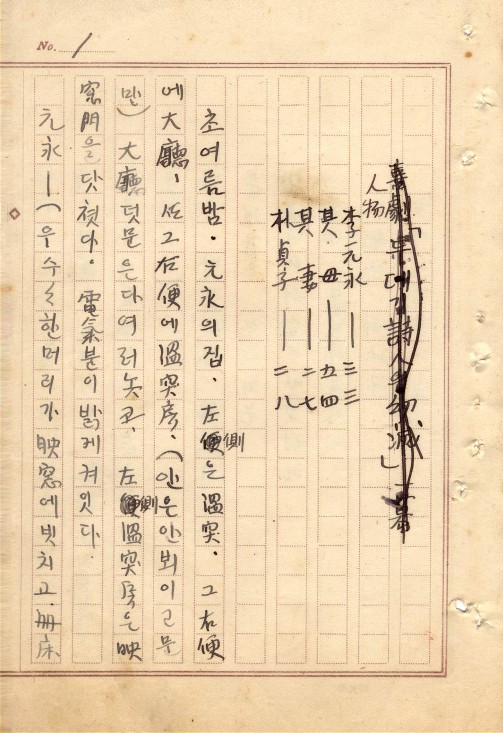 No. 1
喜劇「무데기 詩人의 幻滅」一幕
人物
李元永 — 三三
其母 — 五四
其妻 — 二七
朴貞子 — 二八
초여름밤. 元永의집. 左側은 溫突. 그右便
에大廳, 또그右便에溫突房. (안은안뵈이고문
만) 大廳덧문은다여러놋코. 左側溫突房은映
窓門을닷첫다. 電氣불이밝게켜잇다.
元永— (우수수한머리가 映窓에빗치고. 冊床